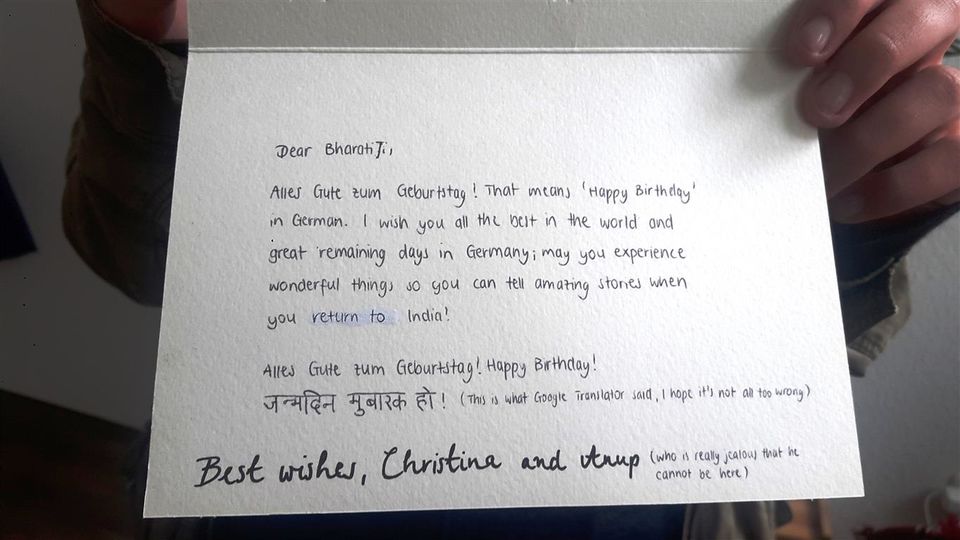 Dear BharatiJi,
Alles Gute zum Geburtstag! That means 'Happy Birthday'
in German. I wish you all the best in the world and
great remaining days in Germany; may you experience
wonderful things so you can tell amazing stories when
you return to India!
Alles Gute zum Geburtstag! Happy Birthday!
जन्मदिन मुबारक हो! (This is what Google Translator said, I hope it's not all too wrong)
Best wishes, Christina and Anup (who is really jealous that he
cannot be here)